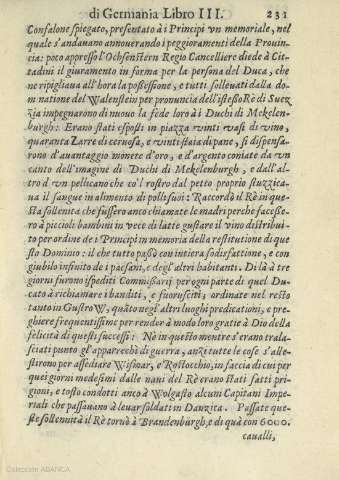 di Germania Libro III. 231
Confalone spiegato, presentato à i Principi vn memoriale, nel
quale s'andauano annouerando i peggioramenti della Prouin-
cia: poco appresso l'Ochsenstern Regio Cancelliere diede à Cit-
tadini il giuramento in forma per la persona del Duca, che
ne ripigliaua all'hora la possessione, e tutti solleuati dalla do
minatione del Walenstein per pronuncia dell'istesso Rè di Suez
zia impegnarono di nuouo la fede loro à i Duchi di Mekelen-
burgh: Erano stati esposti in piazza vinti vasi di vino,
quaranta Zarre di ceruosa, e vinti staia di pane, si dispensa-
rono d'auantaggio monete d'oro, e d'argento coniate da vn
canto dell'imagine di Duchi di Mekelemburgh, e dall'al-
tro d'vn pellicano che co'l rostro dal petto proprio stuzzica-
ua il sangue in alimento di polli suoi: Raccordò il Rè in que-
sta sollenità che fussero anco chiamate le madri perche facesse-
ro à piccioli bambini in vece di latte gustare il vino distribui-
to per ordine de i Principi in memoria della restitutione di que
sto Dominio: il che tutto passò con intiera sodisfattione, e con
giubilo infinito de i paesani, e degl'altri habitanti. Di là à tre
giorni furono ispediti Commissarij per ogni parte di quel Du-
cato à richiamare i banditi, e fuorusciti, ordinate nel resto
tanto in Gustrow, quãto negl'altri luoghi predicationi, e pre-
ghiere frequentissime per render à modo loro gratie à Dio della
felicità di questi successi: Nè in questo mentre s'erano trala-
sciati punto gl'apparecchi di guerra, anzi tutte le cose s'alle-
stirono per assediare Wismar, e Rostocchio, in faccia di cui per
quei giorni medesimi dalle naui del Rè erano stati fatti pri-
gioni, e tosto condotti anco à Wolgasto alcuni Capitani Impe-
riali che passauano à leuar soldati in Danzica. Passate que-
ste sollennità il Rè tornò à Brandenbùrgh, e di quà con 6000.
caualli,
Colección ABANCA